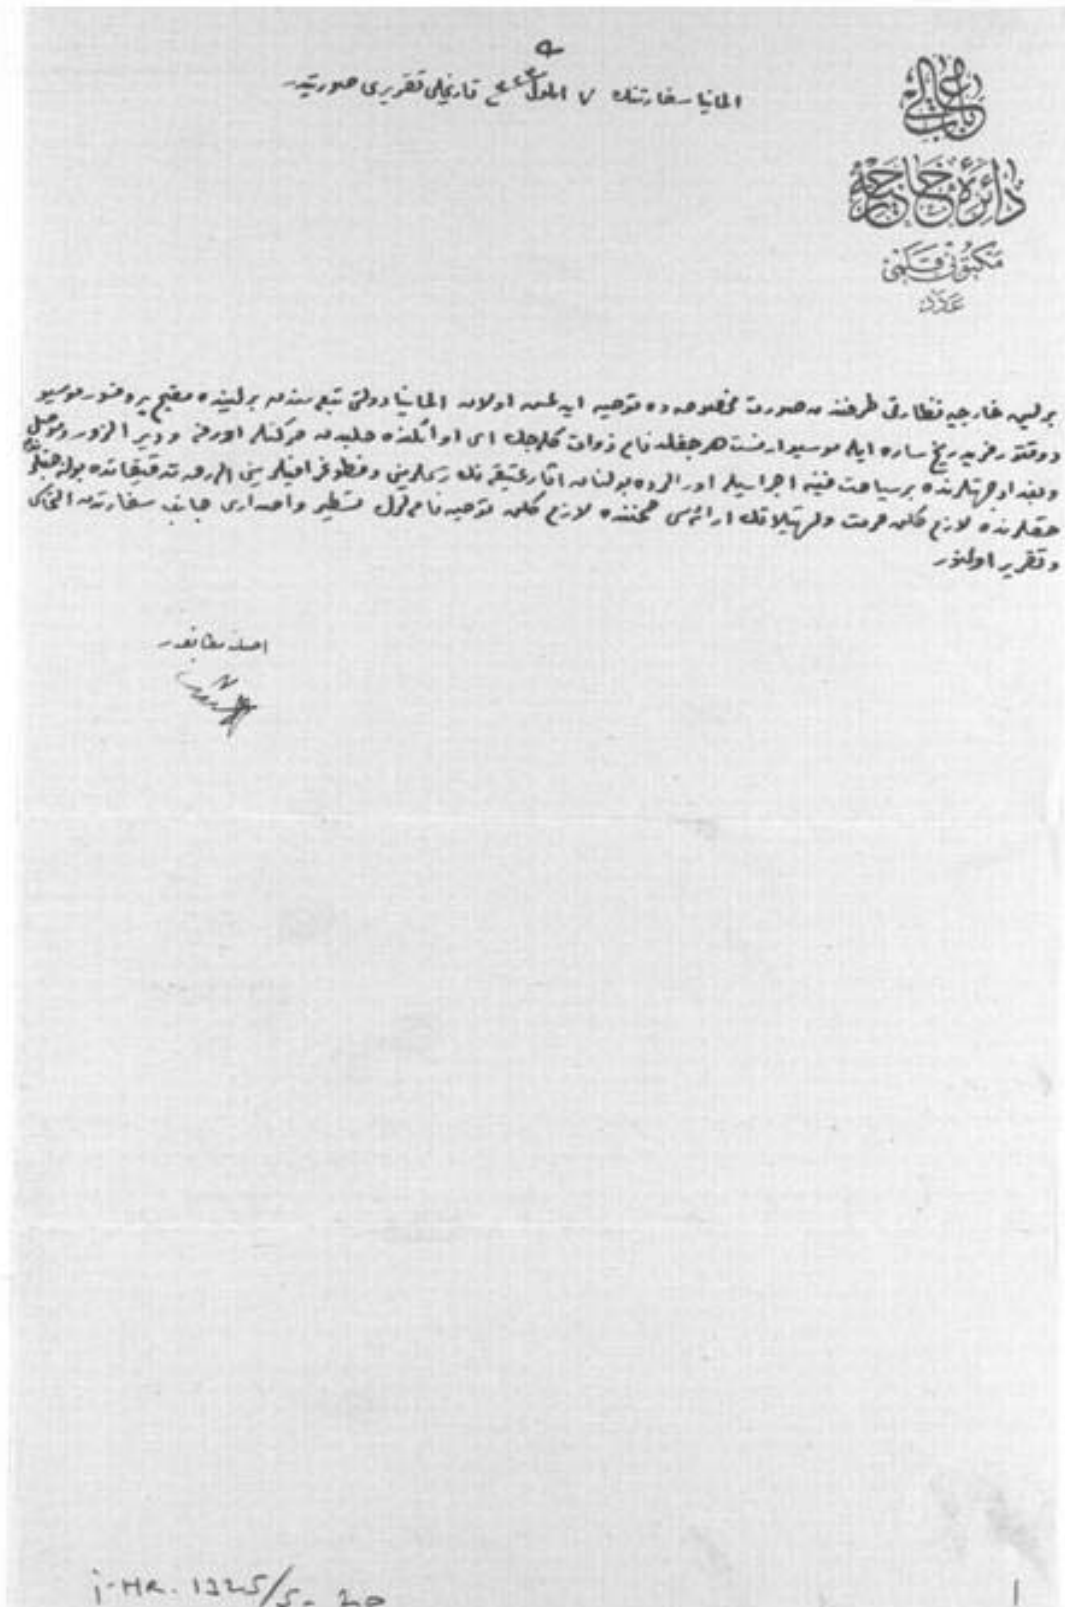 باب عالی
دائرهٔ خارجیه
مکتوبی قلمی
عدد
المانیا سفارتنك ٧ ایلول تاریخلی تقریری صورتیدر
برلین خارجیه نظارتی طرفندن صورت مخصوصه ده توصیه ایدلمش اولان المانیا دولتی تبعه سندن برلینده مقیم پروفسور موسیو
دوقتور فریدریخ ساره ایله موسیو ارنست هرچفلد نام ذوات کله جك ای اوائلنده حلبدن حرکتله اورفه و دیر الزور و موصل
و بغداد جهتلرنده بر سیاحت فنیه اجراسیله اورالرده بولنان اثار عتیقه نك رسملرینی و فطوغرافیلرینی الهرق تدقیقاتده بولنه جقلرندن
حقلرنده لازم کلن حرمت و تسهیلاتك ارائه سی ضمننده لازم کلن توصیه نامه لرك تسطیر و اصداری جانب سفارتدن
و تقریر اولنور
اصلنه مطابقدر
İ-HR. 1325/5-20
1